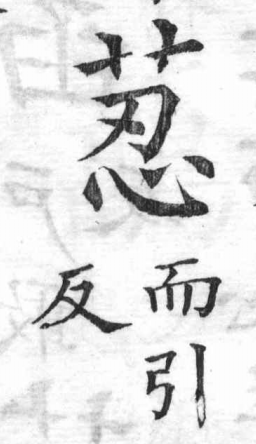 荵
而引
反